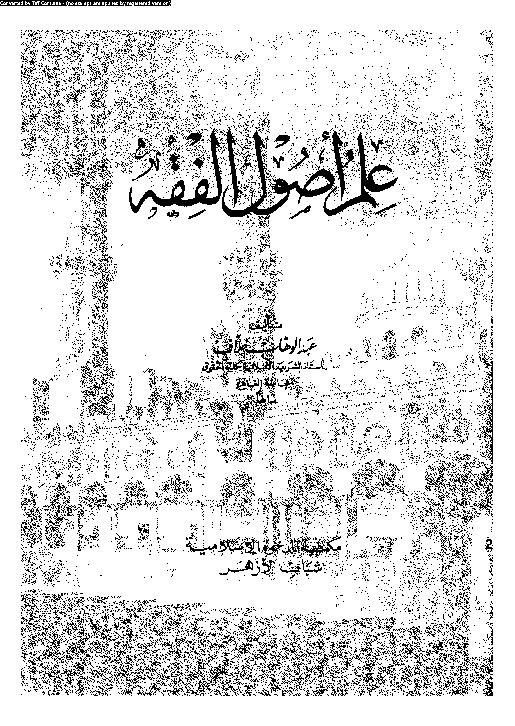 Converted by Tiff Combine - (no stamps are applied by registered version)
علم أصول الفقه
تأليف
عبد الوهاب خلاف
أستاذ الشريعة الإسلامية بكلية الحقوق
بجامعة القاهرة
مكتبة الدعوة الإسلامية
شباب الأزهر